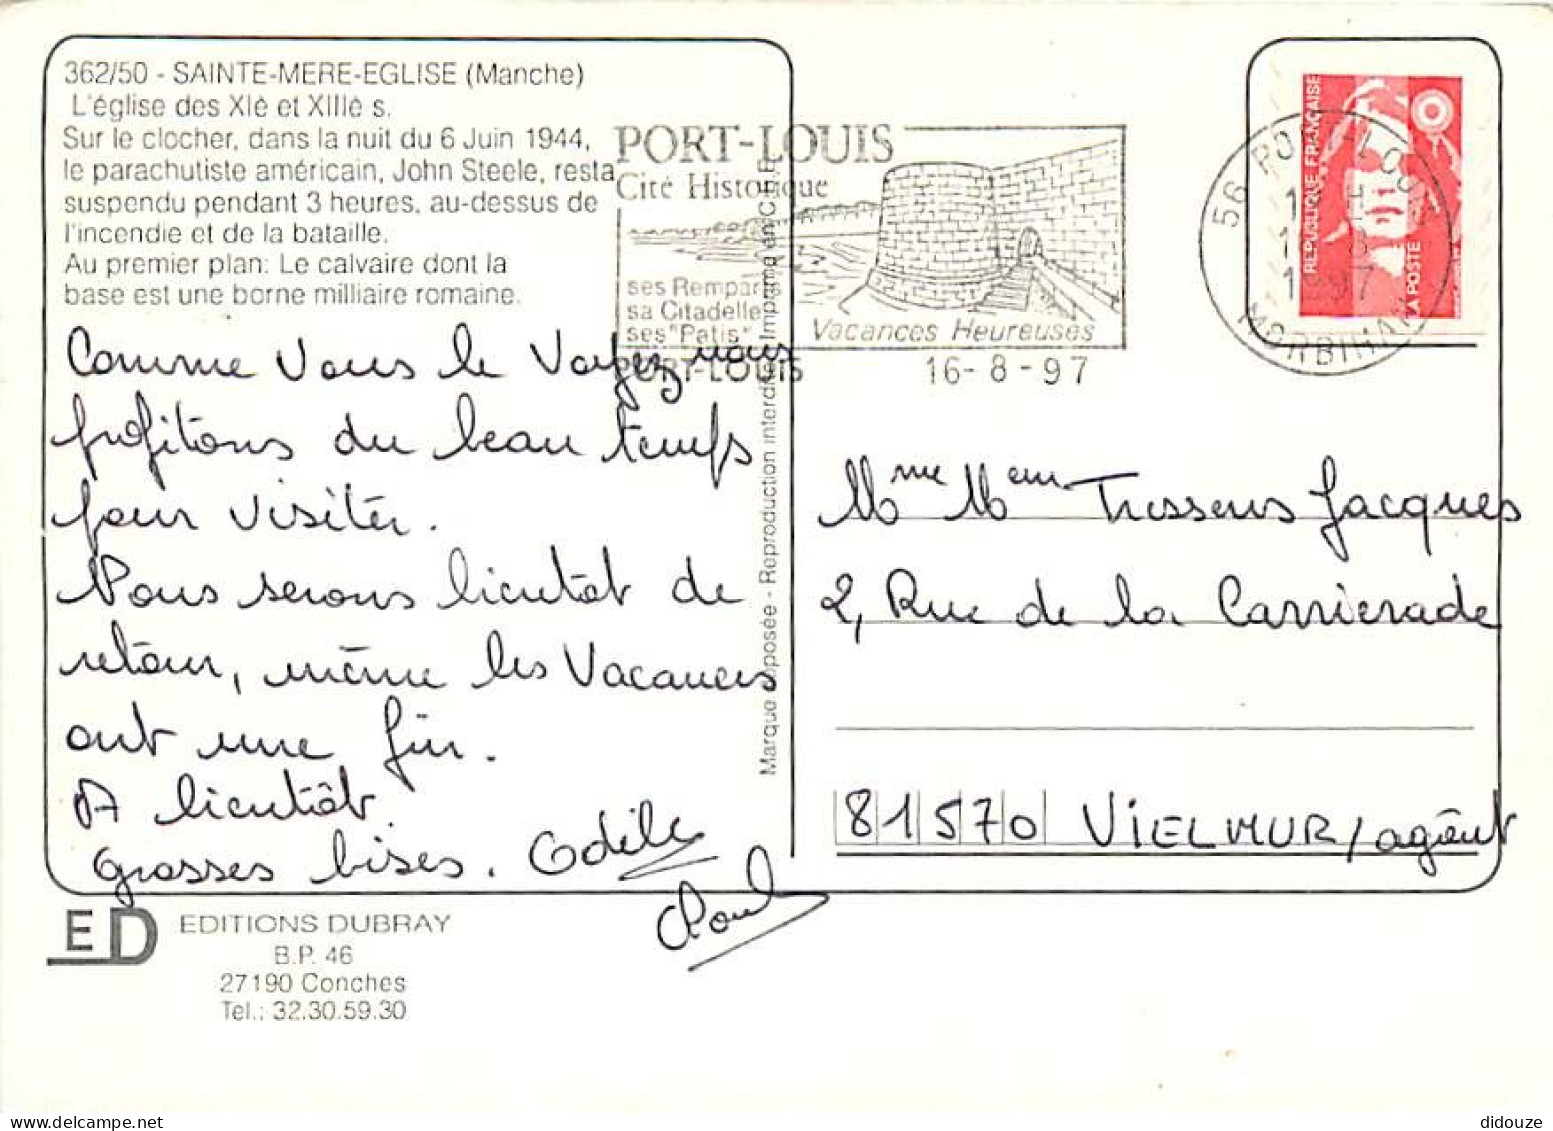 362/50 - SAINTE-MERE-EGLISE (Manche)
L'église des XIè et XIIIè s.
Sur le clocher, dans la nuit du 6 Juin 1944,
le parachutiste américain, John Steele, resta
suspendu pendant 3 heures, au-dessus de
l'incendie et de la bataille.
Au premier plan: Le calvaire dont la
base est une borne milliaire romaine.
Comme Vous le Voyez, nous
profitons du beau temps
pour visiter.
Nous serons bientôt de
retour, même les Vacances
ont une fin.
A bientôt.
Grosses bises. Odile
PORT-LOUIS
Cité Historique
ses Remparts
sa Citadelle
ses "Patis"
Vacances Heureuses
PORT-LOUIS
16-8-97
56 PORT-LOUIS
1997
MORBIHAN
REPUBLIQUE FRANÇAISE
LA POSTE
Marque déposée - Reproduction interdite. Imprimé en C.E.E.
Mme Mem Tressens Jacques
2, Rue de la Carrierade
81570 VIELMUR/agôut
ED
EDITIONS DUBRAY
B.P. 46
27190 Conches
Tel.: 32.30.59.30
didouze